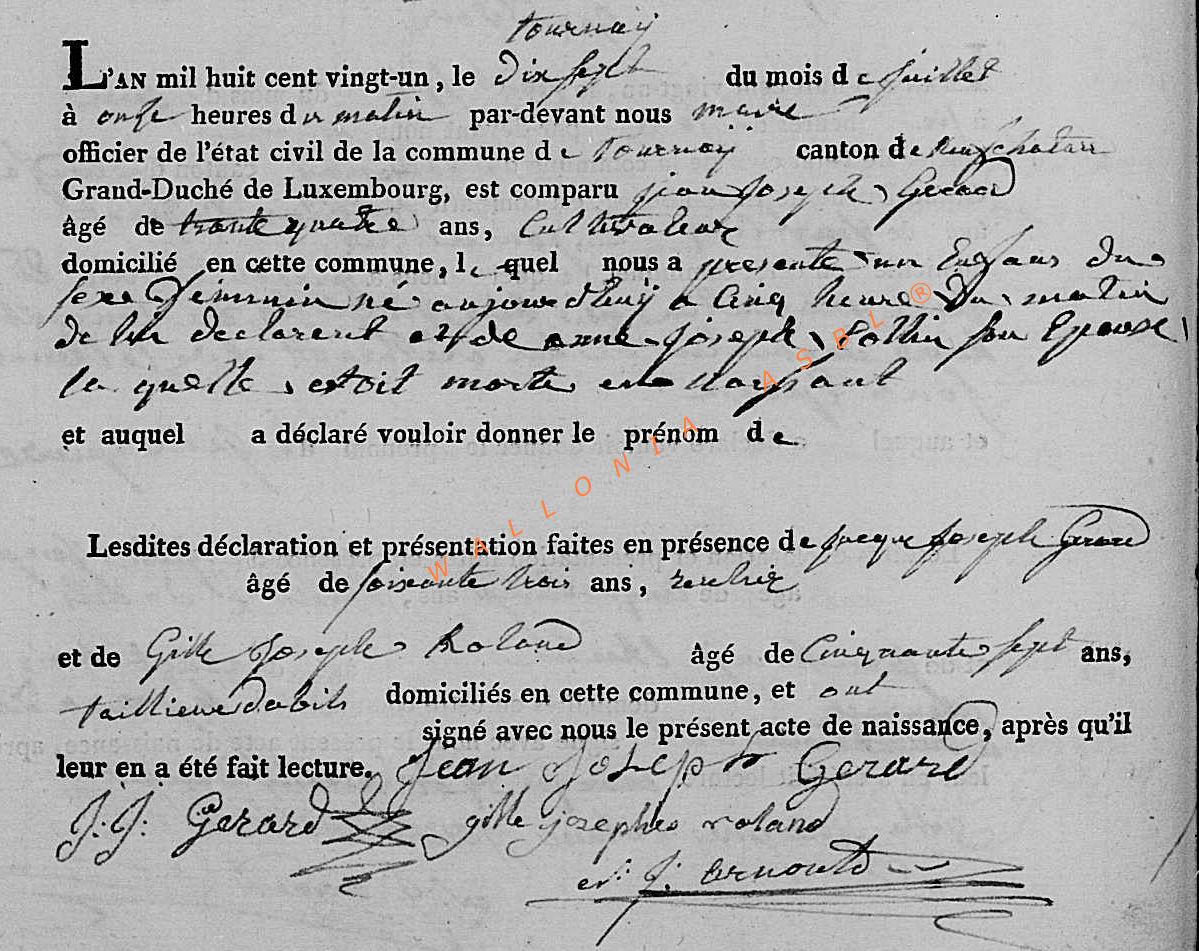 tournaÿ
L'AN mil huit cent vingt-un, le dix sept du mois de juillet
à onze heures du matin par-devant nous maire
officier de l'état civil de la commune de tournaÿ canton de neufchateau
Grand-Duché de Luxembourg, est comparu jean joseph Gerard
âgé de trante quatre ans, Cultivateur
domicilié en cette commune, le quel nous a presente un Enfans du
sexe feminin né aujourdhuÿ a Cinq heure du matin
de lui declarent et de anne joseph Collin son Epouse
la quelle etoit morte en naissant
et auquel a déclaré vouloir donner le prénom de
Lesdites déclaration et présentation faites en présence de jacque joseph Gerard
âgé de soixante trois ans,
et de Gille Joseph Roland âgé de Cinquante sept ans,
taillieur dabits domiciliés en cette commune, et ont
signé avec nous le présent acte de naissance, après qu'il
leur en a été fait lecture. Jean Joseph Gerard
J: J: Gerard gille josephes roland
J. arnould
WALLONIA ASBL ®